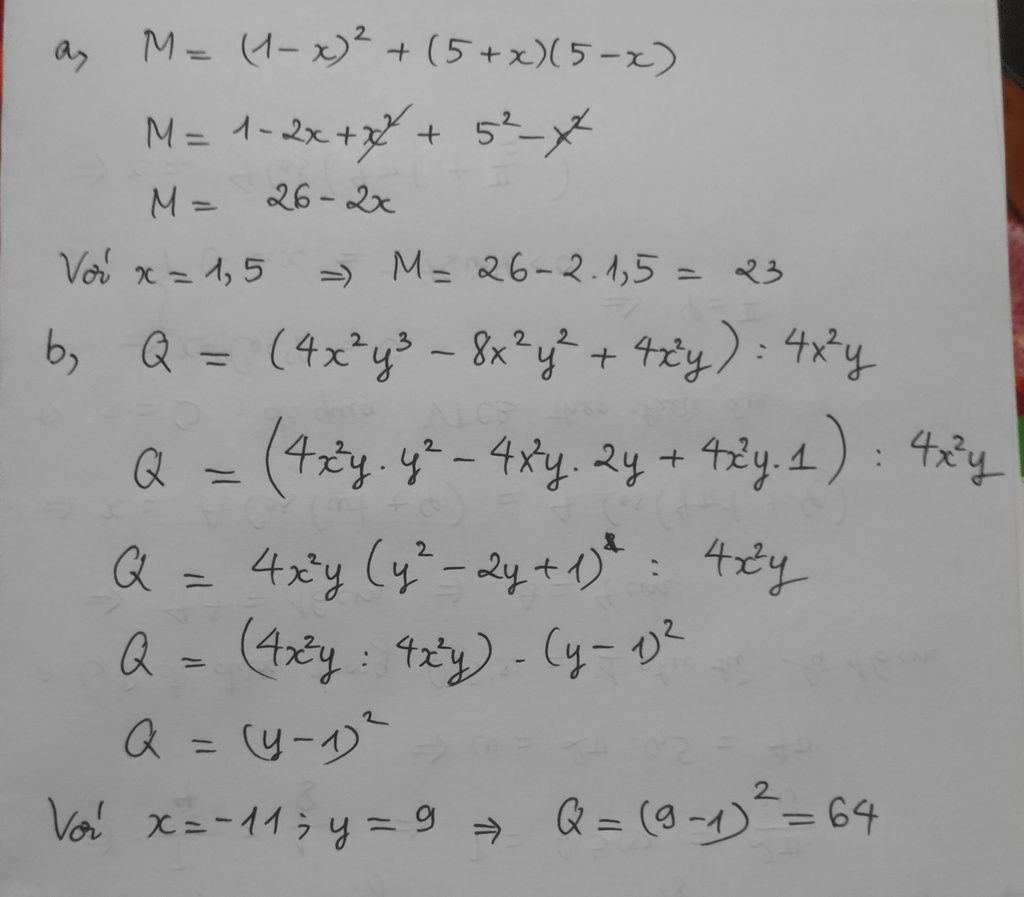 a, M = (1 - x)² + (5 + x)(5 - x)
M = 1 - 2x + x² + 5² - x²
M = 26 - 2x
Với x = 1,5 ⇒ M = 26 - 2.1,5 = 23
b, Q = (4x²y³ - 8x²y² + 4x²y) : 4x²y
Q = (4x²y . y² - 4x²y . 2y + 4x²y . 1) : 4x²y
Q = 4x²y (y² - 2y + 1) : 4x²y
Q = (4x²y : 4x²y) . (y - 1)²
Q = (y - 1)²
Với x = -11 ; y = 9 ⇒ Q = (9 - 1)² = 64